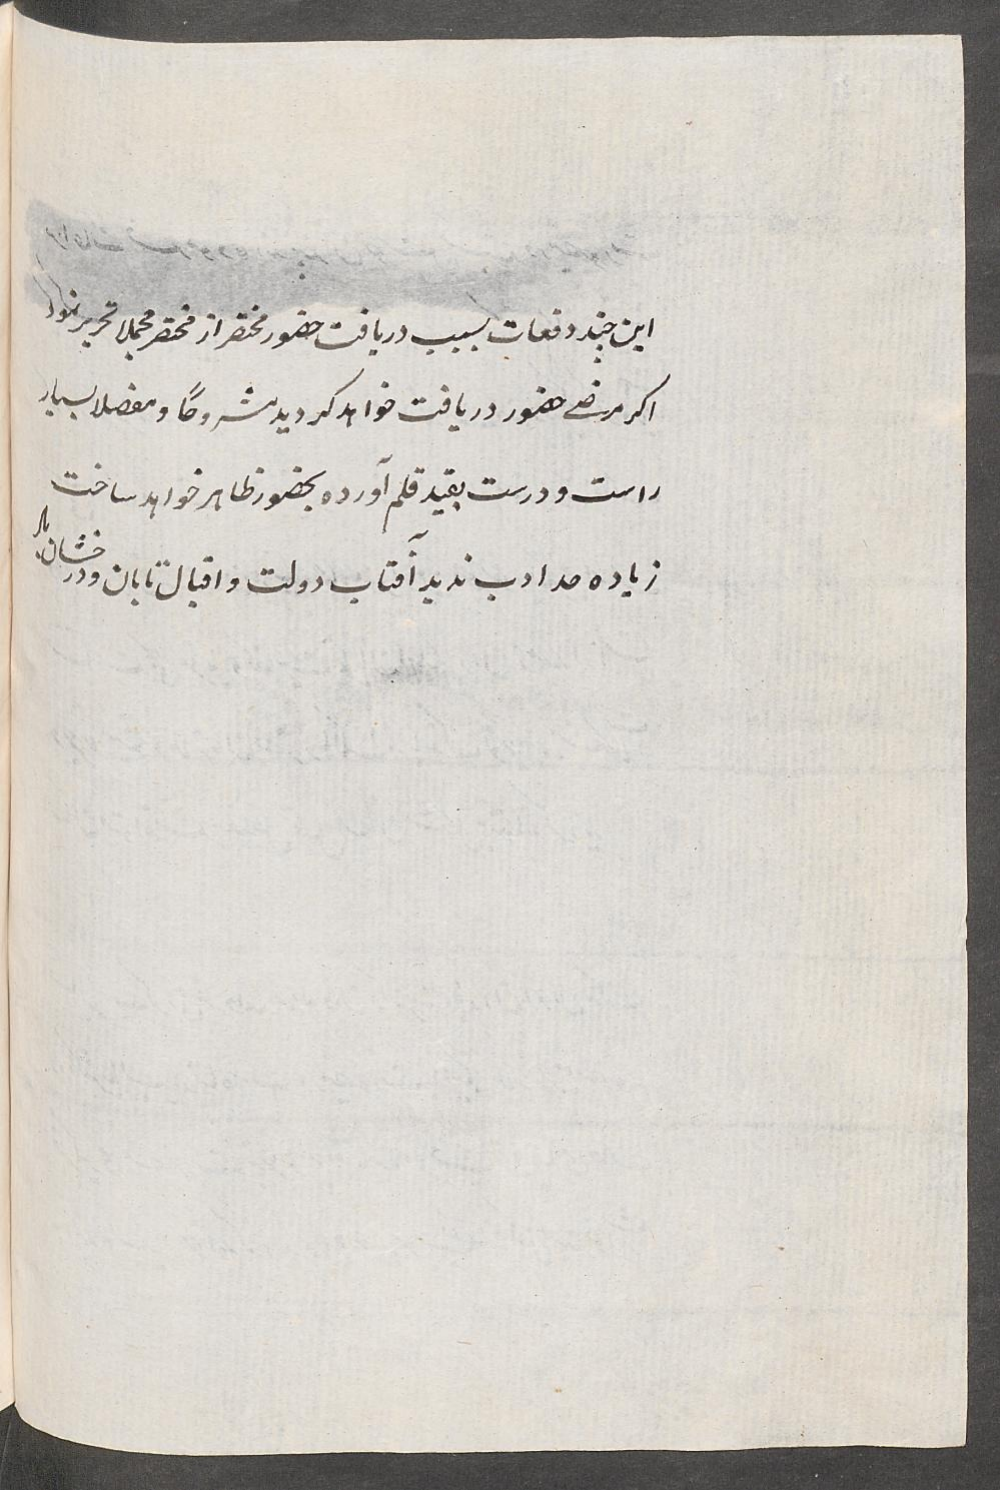 این چند دفعات بسبب دریافت حضور مختصر از مختصر مجملا تحریر نمود
اکر مرضی حضور دریافت خواهد کردید مشروحًا و مفصلا بسیار
راست و درست بقید قلم آورده بحضور ظاهر خواهد ساخت
زیاده حد ادب ندید آفتاب دولت و اقبال تابان و درخشان باد